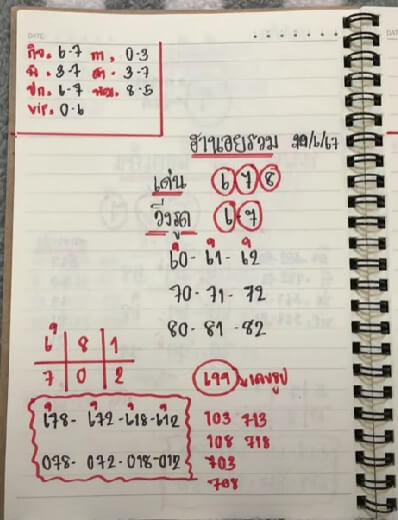 DATE
กิจ. 6-7 กา. 0-3
พิ. 3-7 สา. 3-7
ปก. 6-7 8-5
vip. 0-6
ฮานอยรวม /6/67
เด่น 6 7 8
วิ่งรูด 6 7
60- 61- 62
70- 71- 72
80- 81 -82
6 8 1
7 0 2
678- 672 -618-612
078- 072-018-012
103 713
108 718
703
708